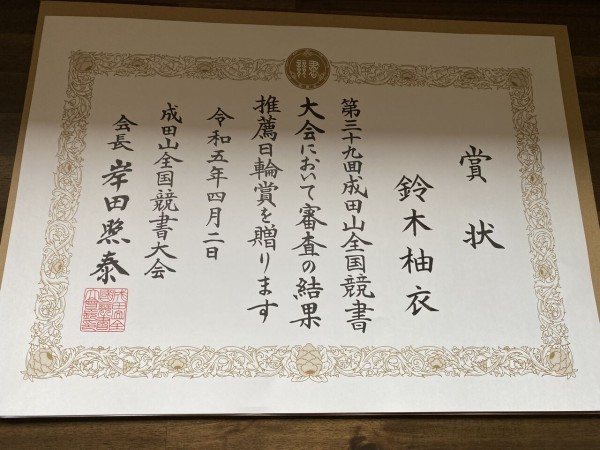 競書
賞状
鈴木柚衣
第三十九回成田山全国競書
大会において審査の結果
推薦日輪賞を贈ります
令和五年四月二日
成田山全国競書大会
会長 岸田照泰